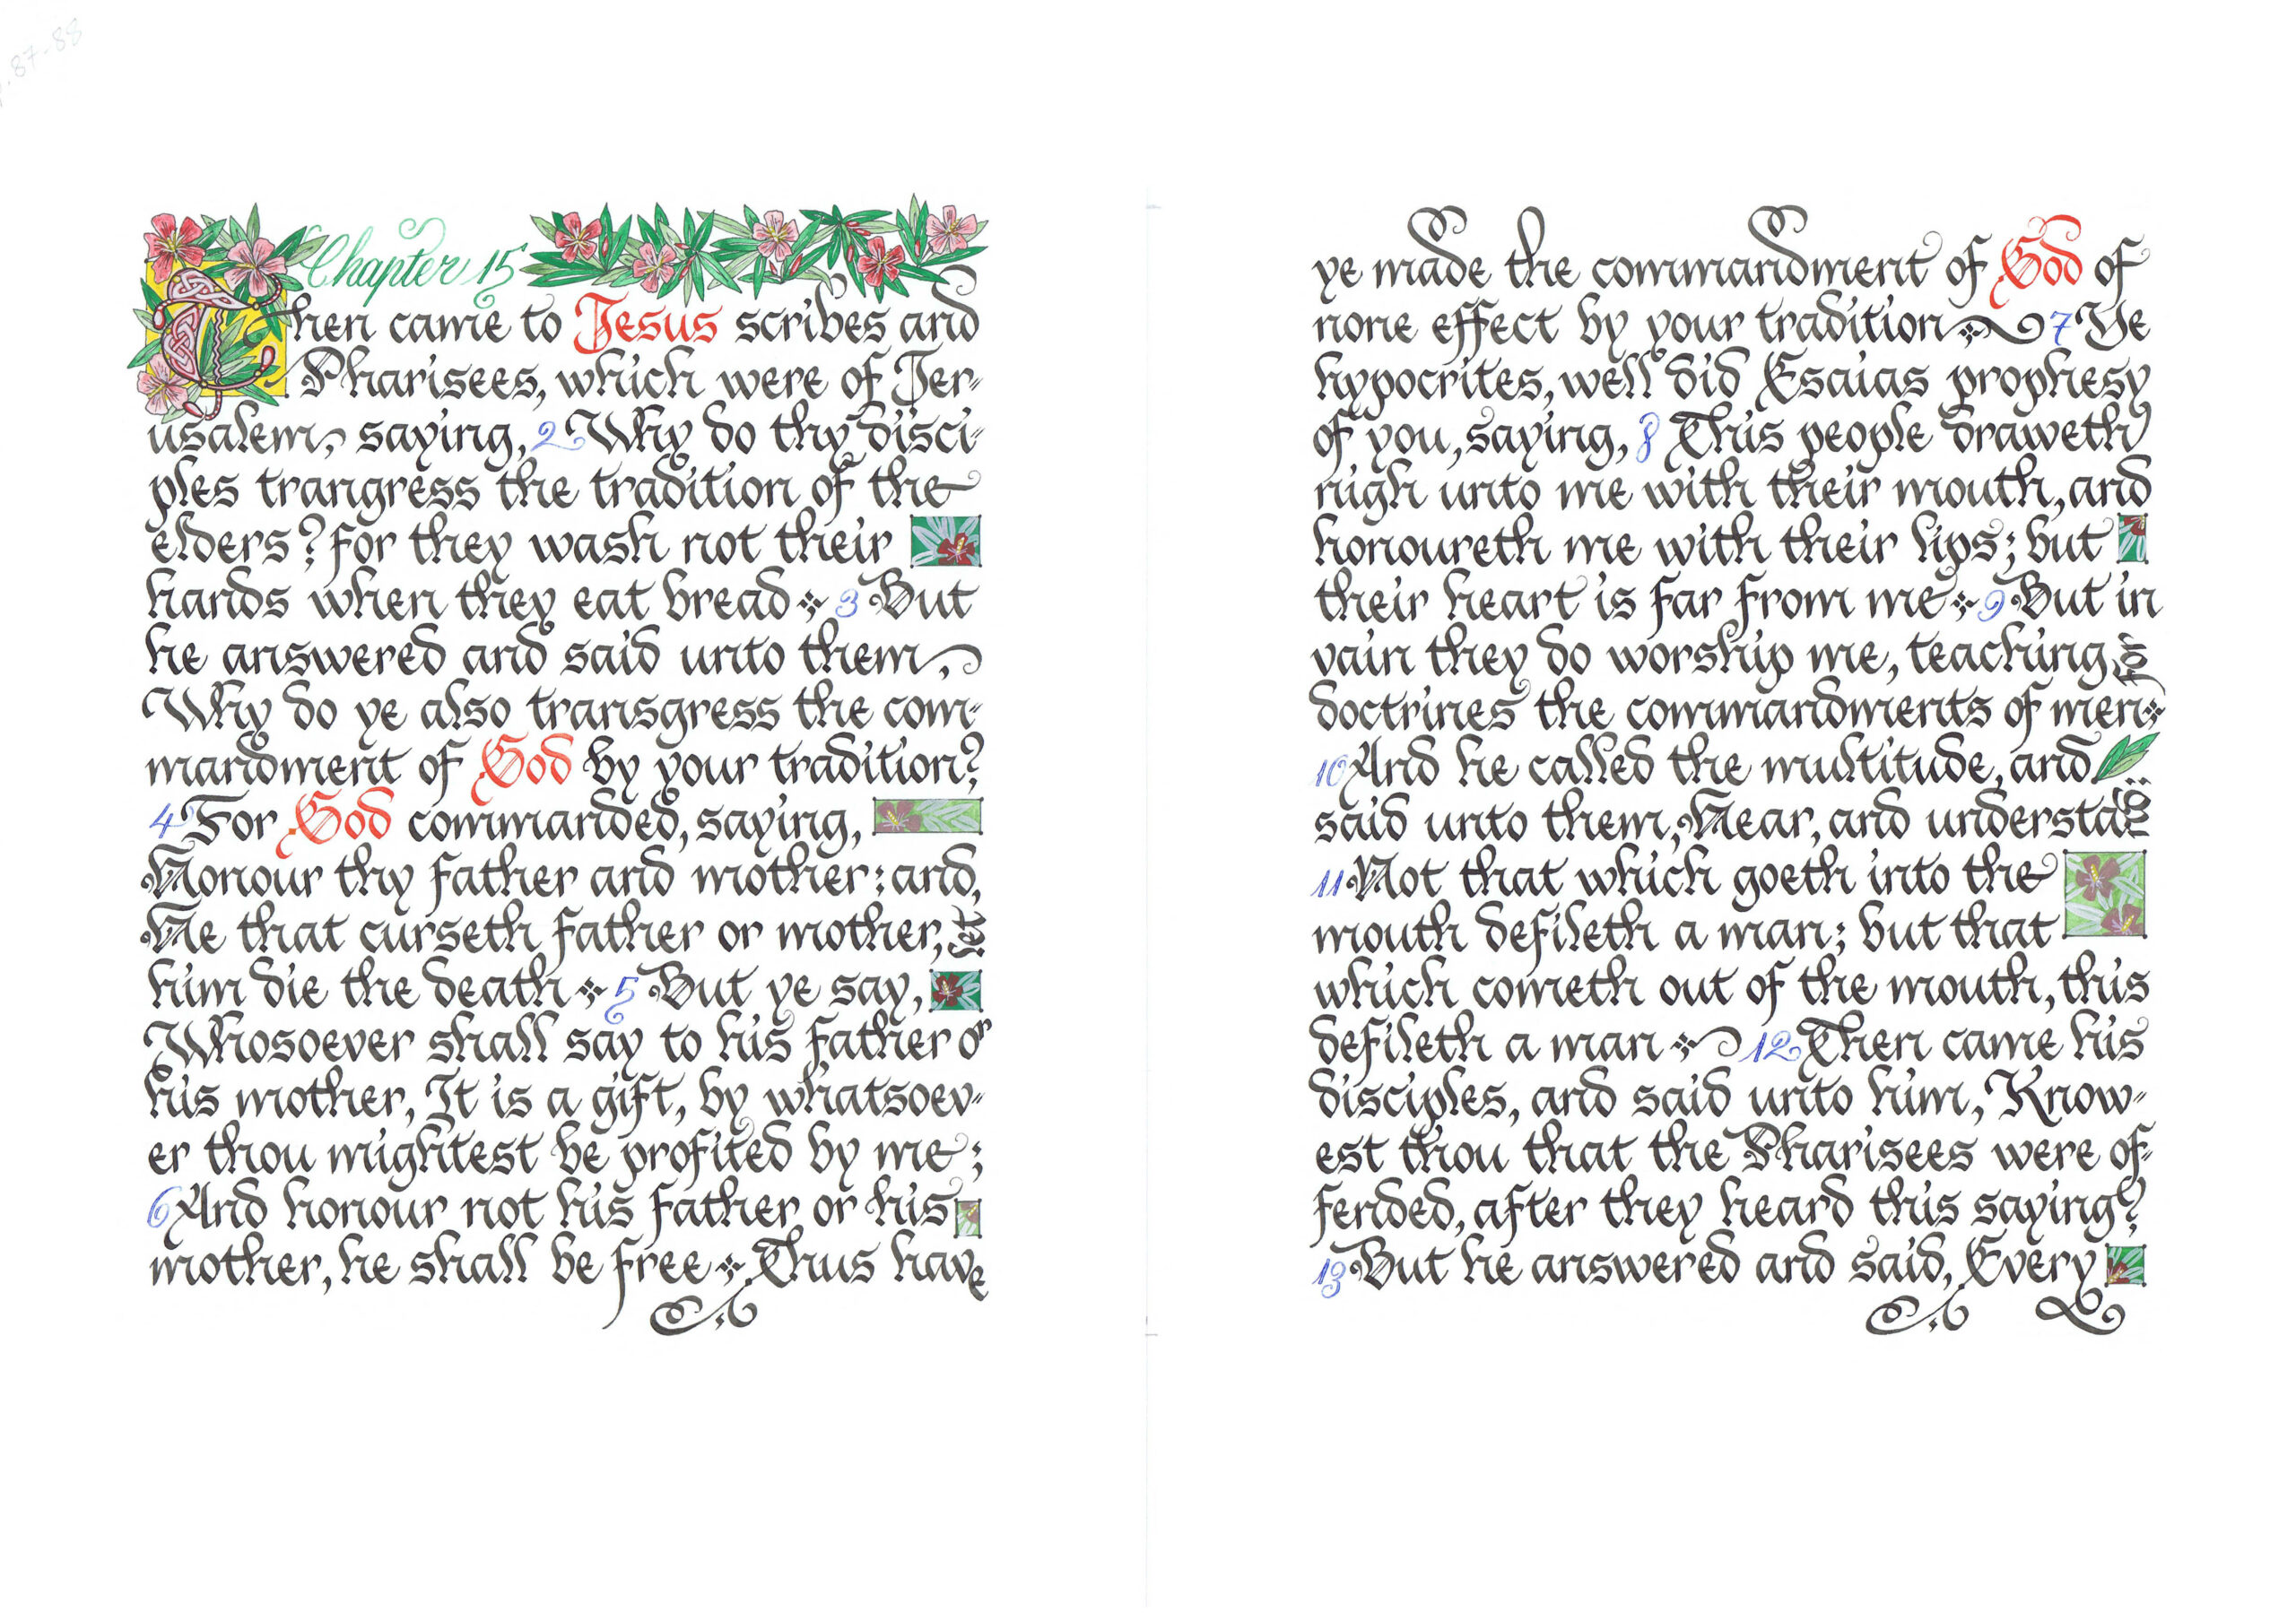 .87-88
Chapter 15
Then came to Jesus scribes and
Pharisees, which were of Jer-
usalem, saying, 2 Why do thy disci-
ples trangress the tradition of the
elders? for they wash not their
hands when they eat bread 3 But
he answered and said unto them,
Why do ye also transgress the com-
mandment of God by your tradition?
4 For God commanded, saying,
Honour thy father and mother: and,
He that curseth father or mother, let
him die the death 5 But ye say,
Whosoever shall say to his father or
his mother, It is a gift, by whatsoev-
er thou mightest be profited by me;
6 And honour not his father or his
mother, he shall be free Thus have
ye made the commandment of God of
none effect by your tradition 7 Ye
hypocrites, well did Esaias prophesy
of you, saying, 8 This people draweth
nigh unto me with their mouth, and
honoureth me with their lips; but
their heart is far from me 9 But in
vain they do worship me, teaching for
doctrines the commandments of men
10 And he called the multitude, and
said unto them, Hear, and understand
11 Not that which goeth into the
mouth defileth a man; but that
which cometh out of the mouth, this
defileth a man 12 Then came his
disciples, and said unto him, Know-
est thou that the Pharisees were of-
fended, after they heard this saying?
13 But he answered and said, Every